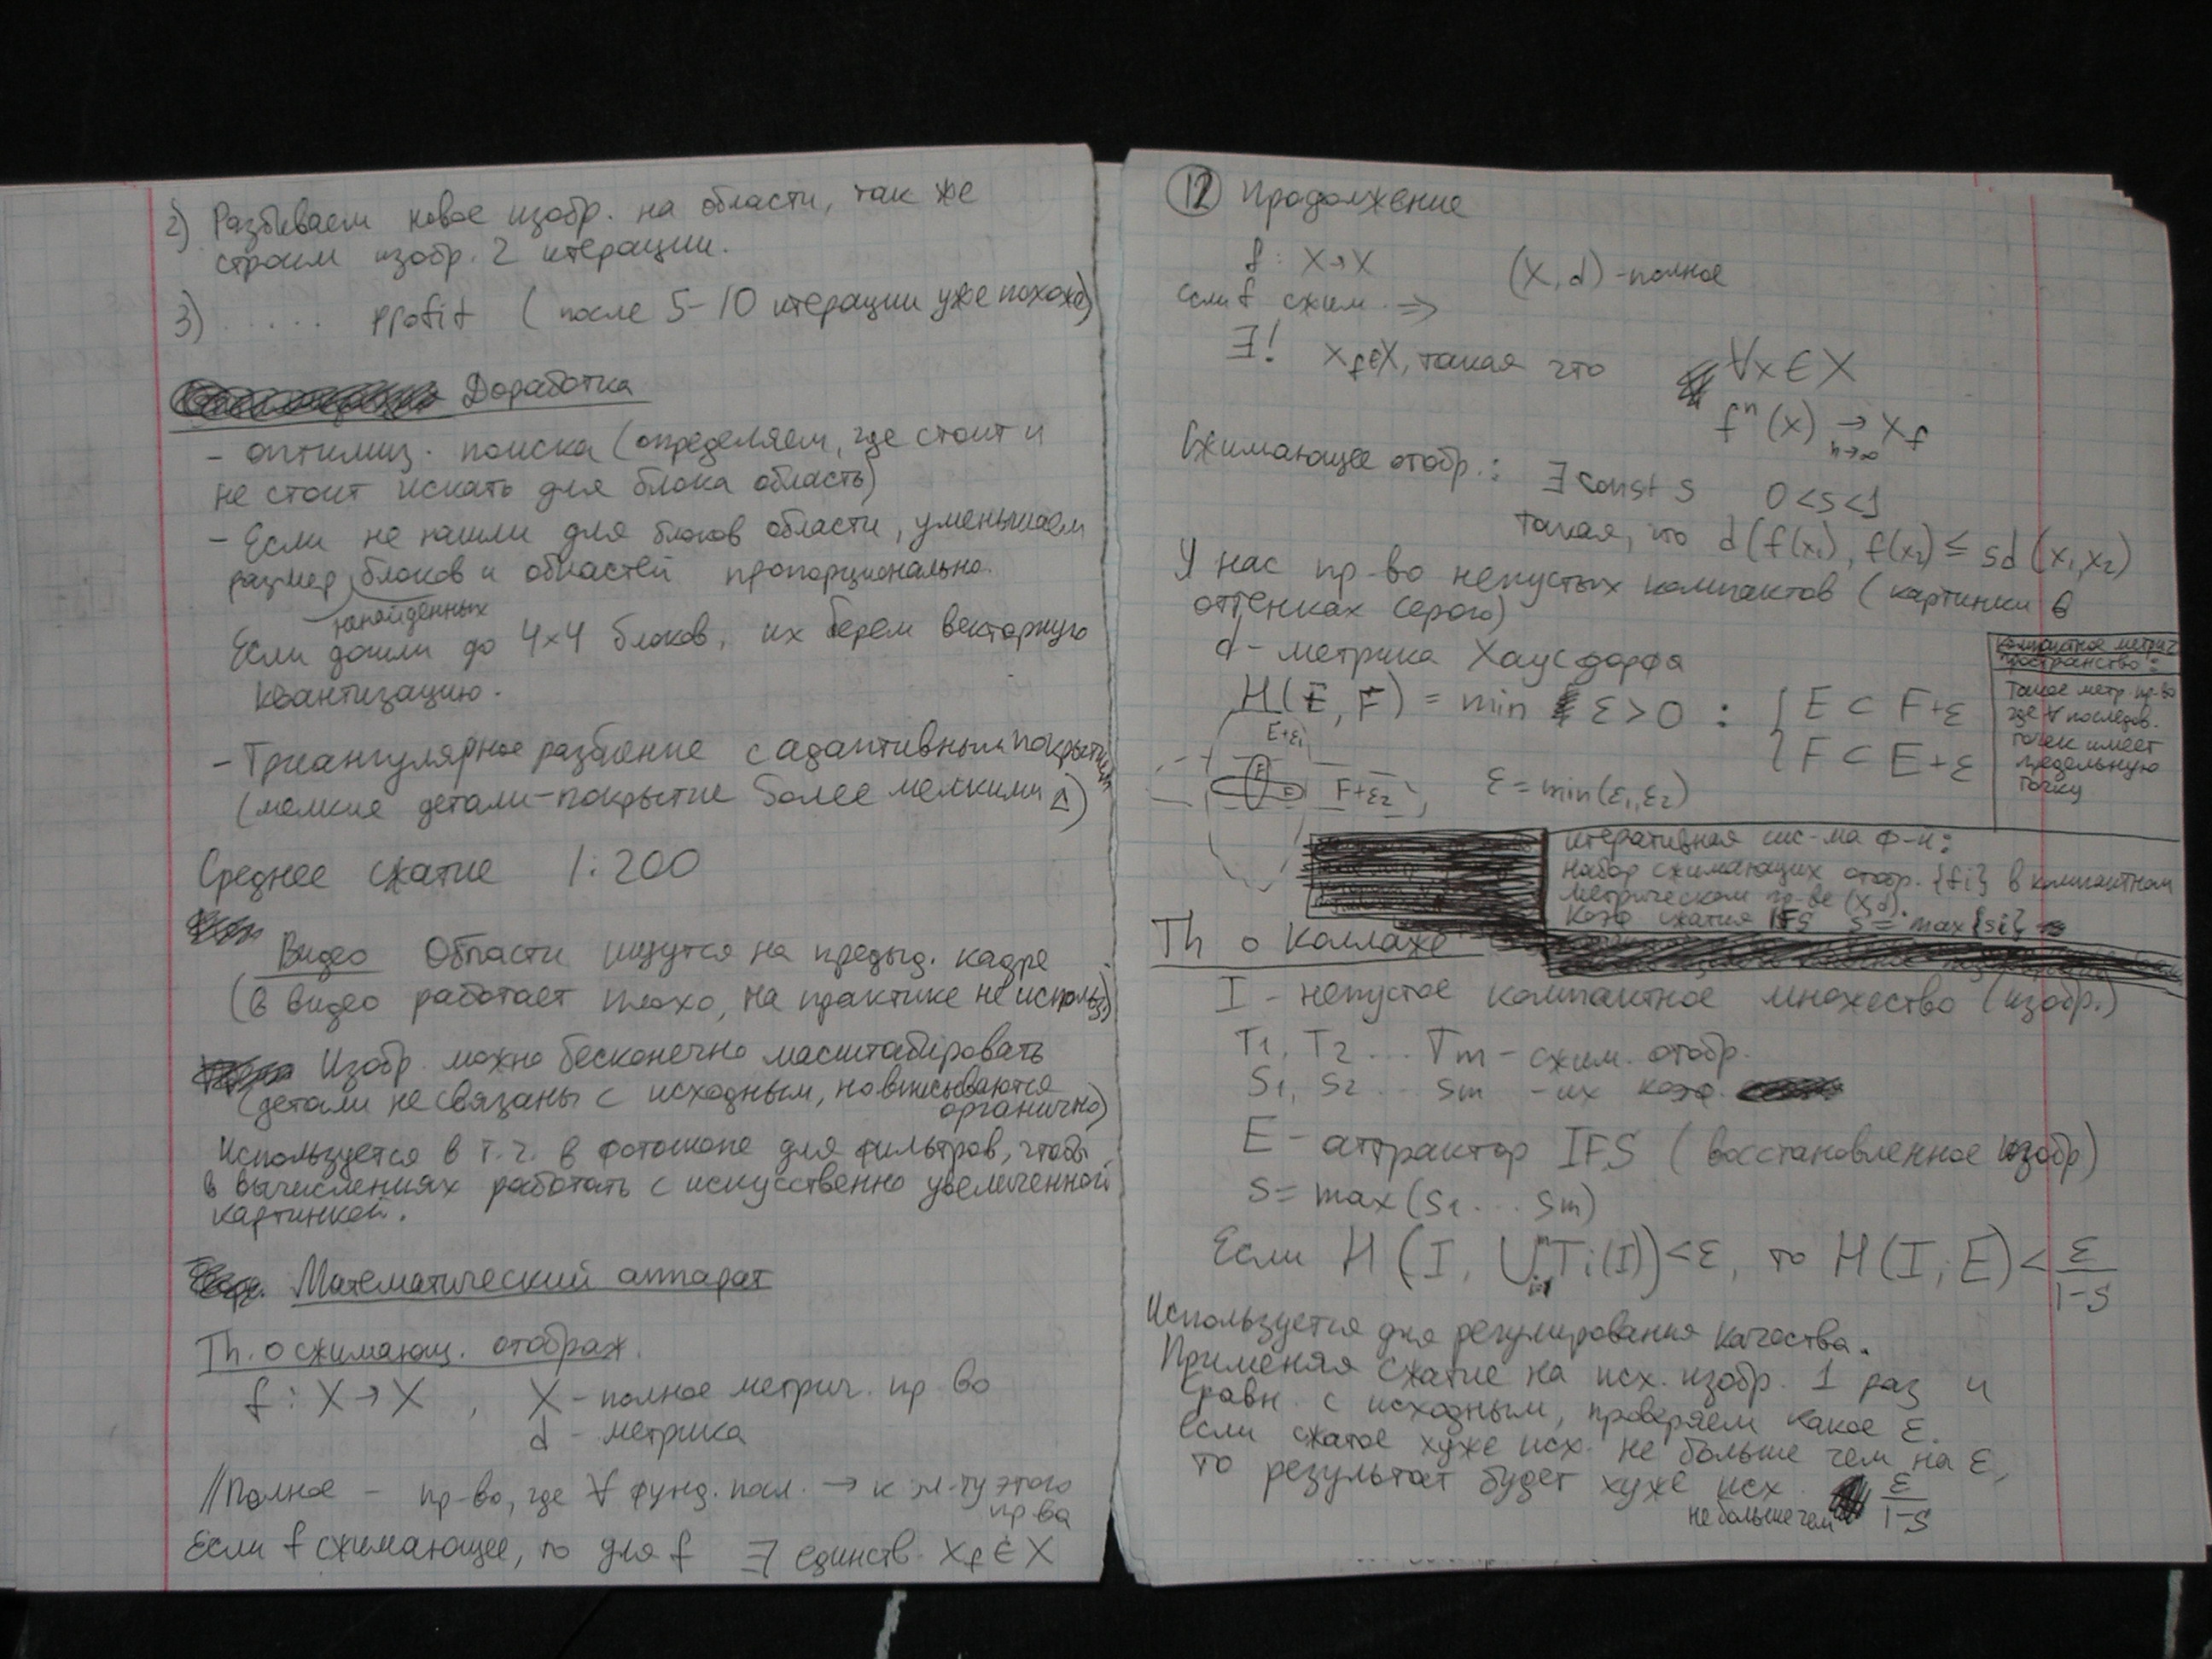 2) Разбиваем новое изобр. на области, так же
строим изобр. 2 итерации.
3) ..... profit (после 5-10 итерации уже похоже)
Доработка
- оптимиз. поиска (определяем, где стоит и
не стоит искать для блока область)
- Если не нашли для блоков области, уменьшаем
размер блоков и областей пропорционально.
ненайденных
Если дошли до 4×4 блоков, их берем векторную
квантизацию.
- Триангулярное разбиение с адаптивным покрытием
(мелкие детали-покрытие более мелкими Δ)
Среднее сжатие 1:200
Видео Области ищутся на предыд. кадре
(в видео работает плохо, на практике не использ.)
Изобр. можно бесконечно масштабировать
(детали не связаны с исходным, но вписываются
органично)
Используется в т.ч. в фотошопе для фильтров, чтобы
в вычислениях работать с искусственно увеличенной
картинкой.
Математический аппарат
Th. о сжимающ. отображ.
f : X → X , X - полное метрич. пр во
d - метрика
// Полное - пр-во, где ∀ фунд. посл. → к эл-ту этого
пр ва
Если f сжимающее, то для f ∃ единств. x_f ∈ X
12 Продолжение
f : X → X (X, d) - полное
если f сжим. ⇒
∃! x_f ∈ X, такая что ∀x ∈ X
fⁿ(x) → x_f
n→∞
Сжимающее отобр.: ∃ const s 0 < s < 1
такая, что d(f(x₁), f(x₂)) ≤ sd(x₁, x₂)
У нас пр-во непустых компактов (картинки в
оттенках серого)
d - метрика Хаусдорфа
H(E, F) = min ε > 0 : { E ⊂ F+ε
{ F ⊂ E+ε
E+ε₁
F
E
F+ε₂ , ε = min(ε₁, ε₂)
Компактное метрич
пространство:
Такое метр. пр-во
где ∀ последов.
точек имеет
предельную
точку
итеративная сис-ма ф-й:
набор сжимающих отобр. {fi} в компактном
метрическом пр-ве (X,d).
Коэф сжатия IFS s = max{si}
Th о коллаже
I - непустое компактное множество (изобр.)
T₁, T₂ ... Tm - сжим. отобр.
s₁, s₂ ... sm - их коэф.
E - аттрактор IFS (восстановленное изобр)
s = max(s₁ ... sm)
Если H(I, ⋃ᵢ₌₁ᵐ Ti(I)) < ε, то H(I, E) < ε/(1-s)
Используется для регулирования качества.
Применяя сжатие на исх. изобр. 1 раз и
сравн. с исходным, проверяем какое ε.
если сжатое хуже исх. не больше чем на ε,
то результат будет хуже исх. ε/(1-s)
не больше чем